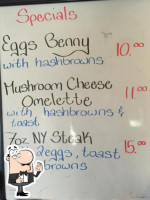 Specials
Eggs Benny 10.00
with hashbrowns
Mushroom Cheese
Omelette 11.00
with hashbrowns &
toast
7oz. NY Steak 15.00
2eggs, toast
browns